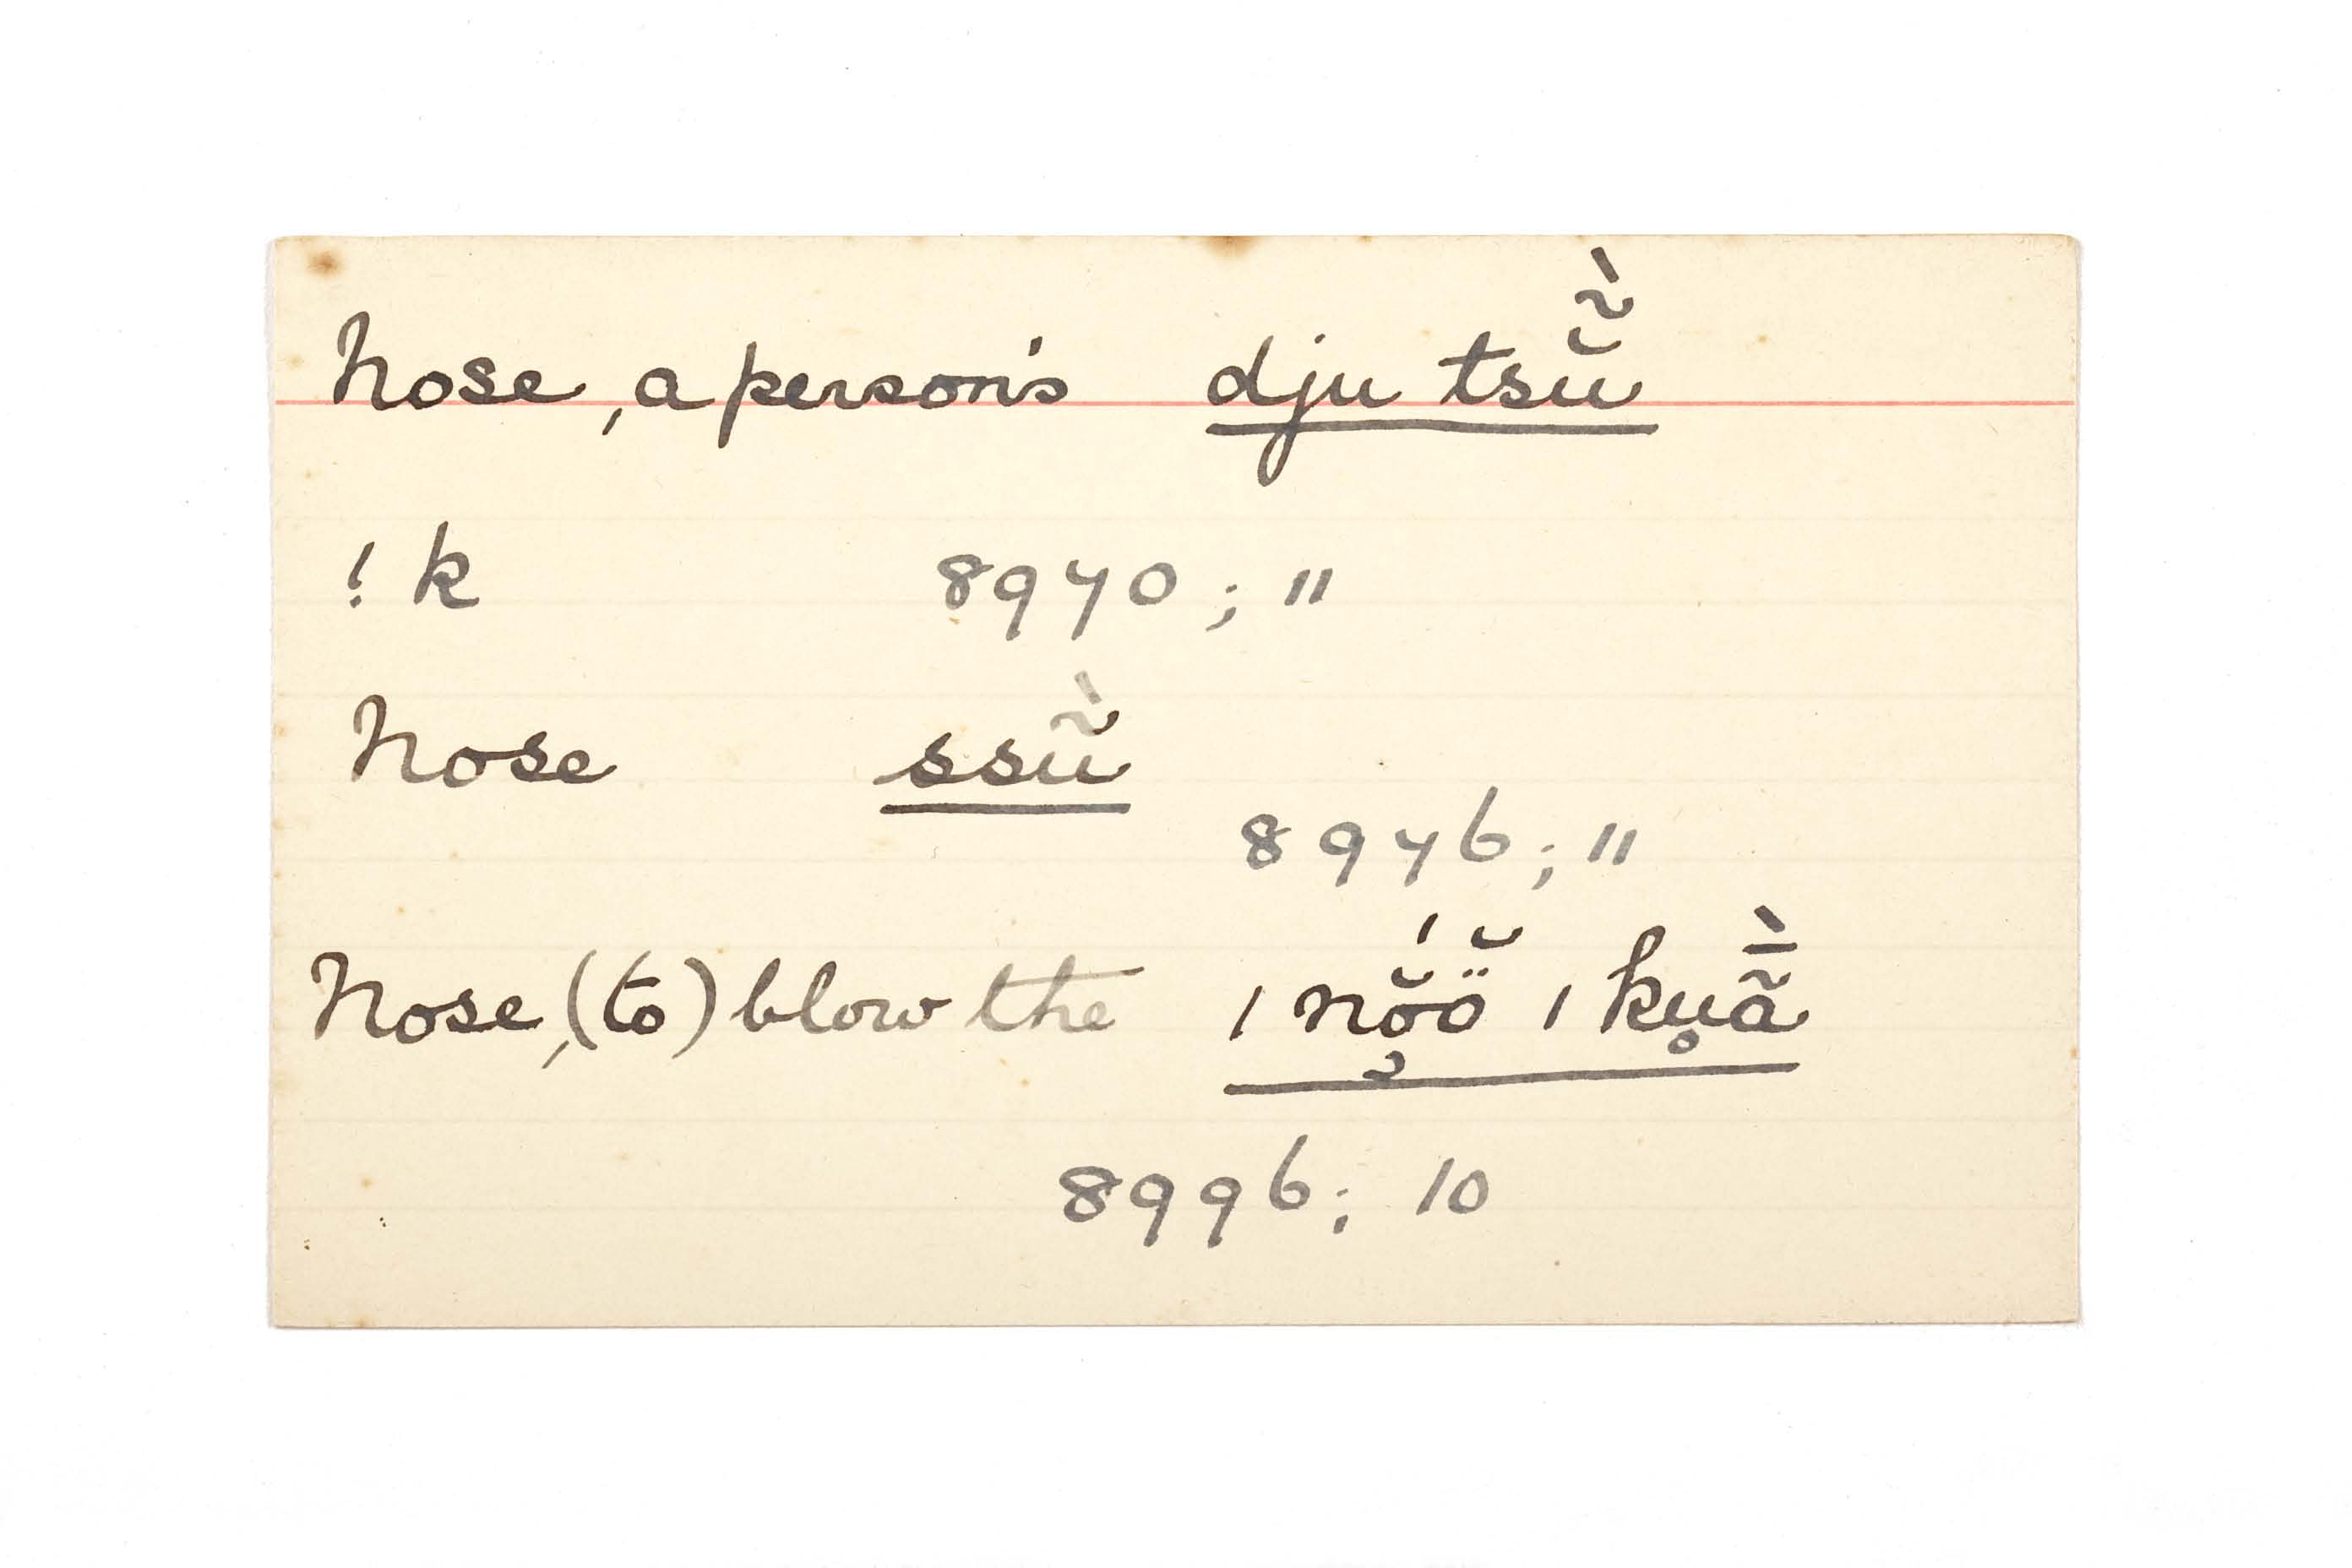 Nose, a person's dju tsŭ̃̀
! k 8970; "
Nose ssũ̀
8976; "
Nose, (to) blow the ǀ nŏ̜́ö̆ ǀ kṷã̄̀
8996; 10